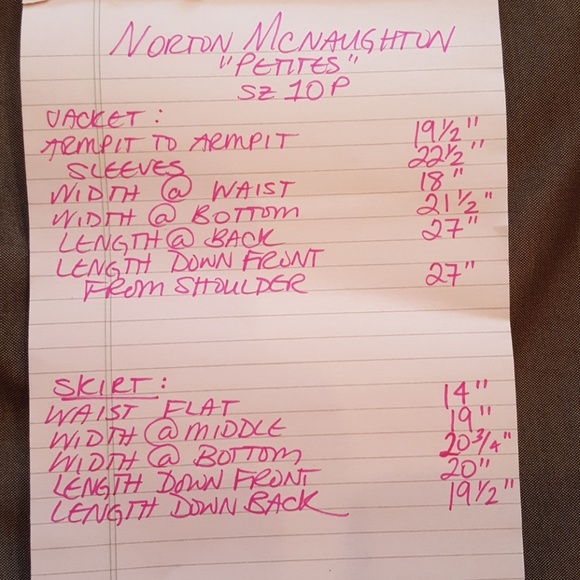 NORTON MCNAUGHTON
"PETITES"
SZ 10P
JACKET:
ARMPIT TO ARMPIT 19 1/2"
SLEEVES 22 1/2"
WIDTH @ WAIST 18"
WIDTH @ BOTTOM 21 1/2"
LENGTH @ BACK 27"
LENGTH DOWN FRONT
FROM SHOULDER 27"
SKIRT:
WAIST FLAT 14"
WIDTH @ MIDDLE 19"
WIDTH @ BOTTOM 20 3/4"
LENGTH DOWN FRONT 20"
LENGTH DOWN BACK 19 1/2"